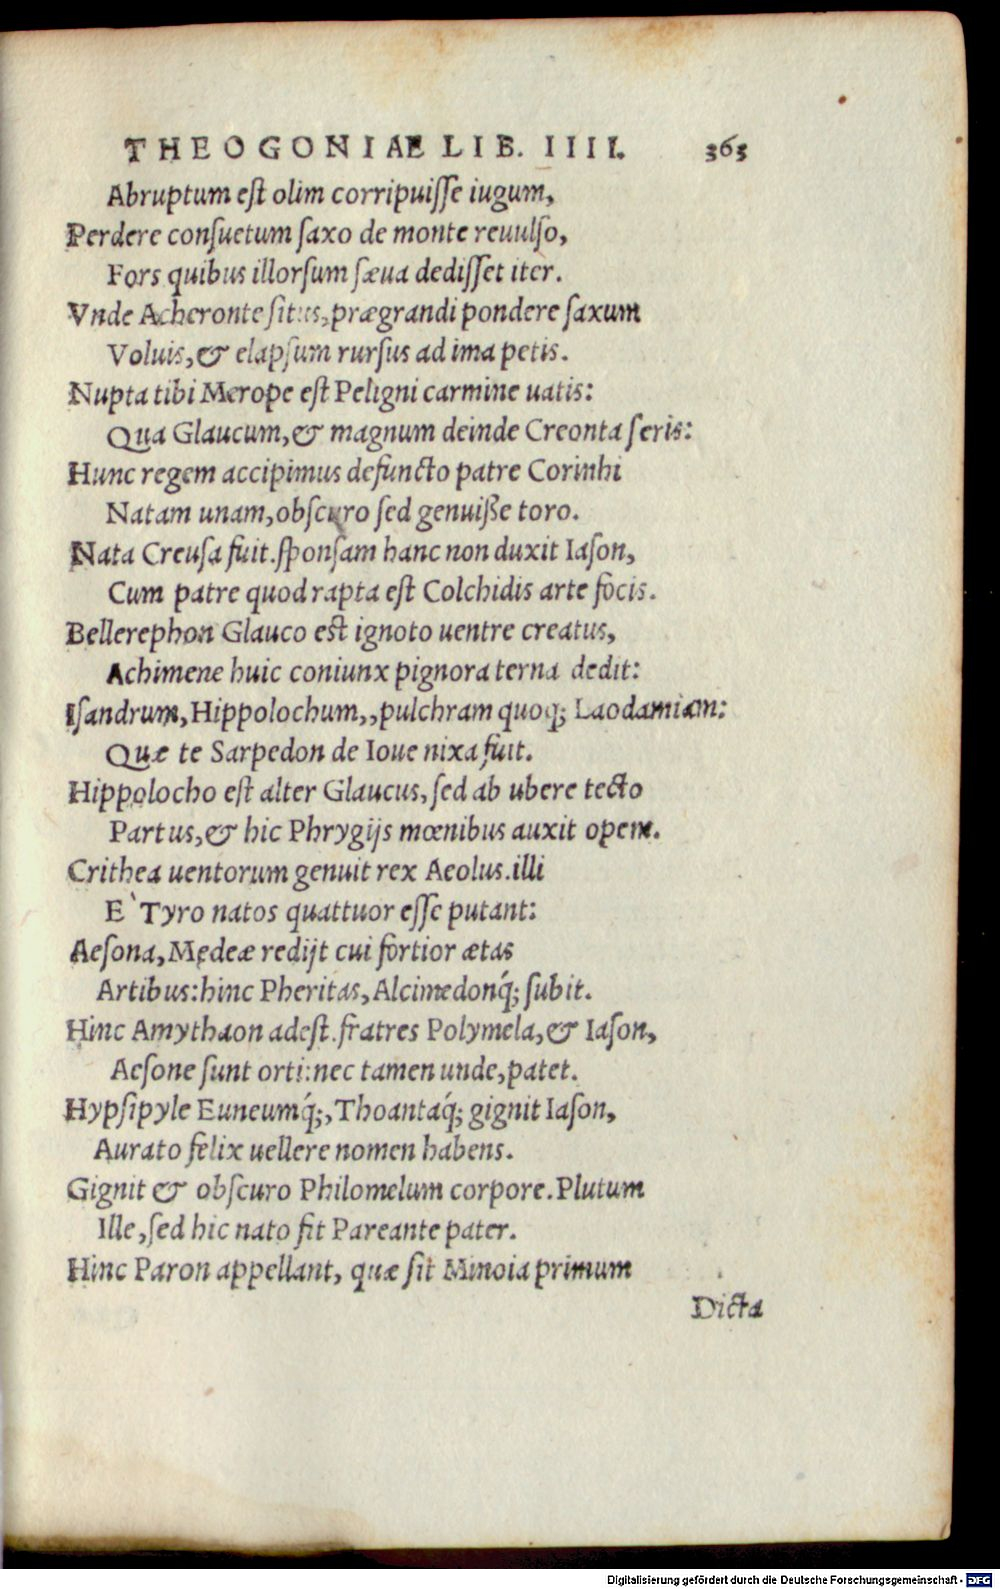 THEOGONIAE LIB. IIII. 363
Abruptum eſt olim corripuiſſe iugum,
Perdere conſuetum ſaxo de monte reuulſo,
Fors quibus illorſum ſæua dediſſet iter.
Vnde Acheronte ſitus, prægrandi pondere ſaxum
Voluis, & elapſum rurſus ad ima petis.
Nupta tibi Merope eſt Peligni carmine uatis:
Qua Glaucum, & magnum deinde Creonta ſeris:
Hunc regem accipimus defuncto patre Corinhi
Natam unam, obſcuro ſed genuiſſe toro.
Nata Creuſa fuit. ſponſam hanc non duxit Iaſon,
Cum patre quod rapta eſt Colchidis arte focis.
Bellerephon Glauco eſt ignoto uentre creatus,
Achimene huic coniunx pignora terna dedit:
Iſandrum, Hippolochum,, pulchram quoq; Laodamiam:
Quæ te Sarpedon de Ioue nixa fuit.
Hippolocho eſt alter Glaucus, ſed ab ubere tecto
Partus, & hic Phrygijs mœnibus auxit opem.
Crithea uentorum genuit rex Aeolus. illi
E` Tyro natos quattuor eſſe putant:
Aeſona, Medeæ redijt cui fortior ætas
Artibus: hinc Pheritas, Alcimedonq́; ſubit.
Hinc Amythaon adeſt. fratres Polymela, & Iaſon,
Aeſone ſunt orti: nec tamen unde, patet.
Hypſipyle Euneumq́;, Thoantaq́; gignit Iaſon,
Aurato felix uellere nomen habens.
Gignit & obſcuro Philomelum corpore. Plutum
Ille, ſed hic nato fit Pareante pater.
Hinc Paron appellant, quæ ſit Minoia primum
Dicta
Digitalisierung gefördert durch die Deutsche Forschungsgemeinschaft - DFG